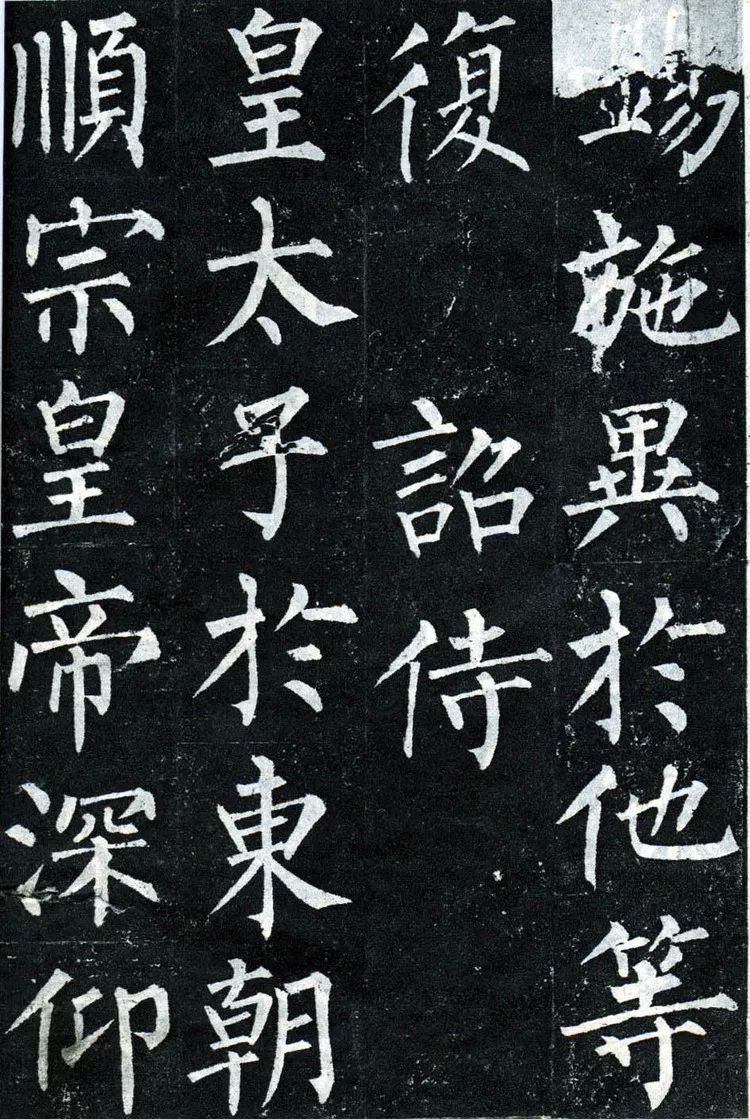 施異於他等
復 詔侍
皇太子於東朝
順宗皇帝深仰